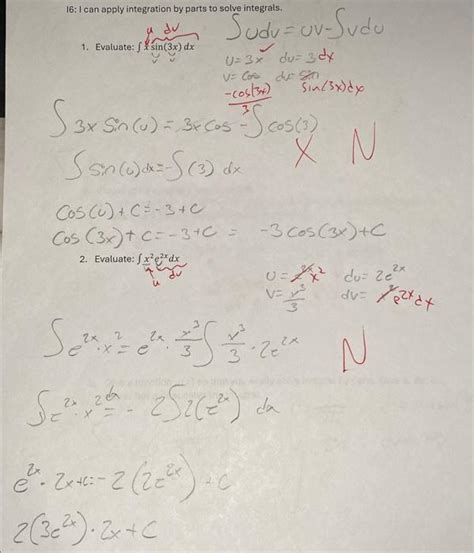 I6: I can apply integration by parts to solve integrals.
u dv
∫udv = uv - ∫vdu
1. Evaluate: ∫ x sin(3x) dx
u = 3x ✓ du = 3 dx
v = cos dv = sin
-cos(3x)/3 sin(3x)dx
∫ 3x sin(u) = 3x cos - ∫ cos(3)
X N
∫ sin(u) dx = - ∫ (3) dx
cos(u) + C = -3 + C
cos(3x) + C = -3 + C = -3 cos(3x) + C
2. Evaluate: ∫ x² e²ˣ dx
u dv
u = x² du = 2e²ˣ
v = x³/3 dv = e²ˣ dx
∫ e²ˣ · x² = e²ˣ · x³/3 ∫ x³/3 · 2e²ˣ
N
∫ e²ˣ · x² dx = - 2∫2(e²ˣ) dx
e²ˣ · 2x + C = -2(2e²ˣ) + C
2(3e²ˣ) · 2x + C